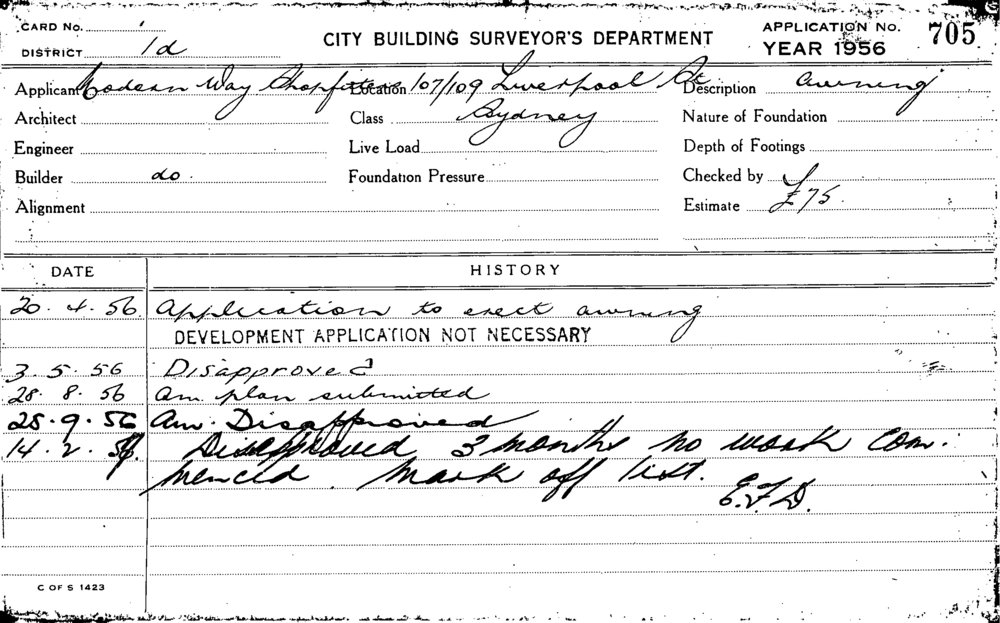 CARD No.
DISTRICT 1d
CITY BUILDING SURVEYOR'S DEPARTMENT
APPLICATION No. 705
YEAR 1956
Applicant Modern Way Shopfitters Location 107/109 Liverpool St Description awning
Architect Class Sydney Nature of Foundation
Engineer Live Load Depth of Footings
Builder do. Foundation Pressure Checked by
Alignment Estimate £75.
DATE HISTORY
20.4.56 Application to erect awning
DEVELOPMENT APPLICATION NOT NECESSARY
3.5.56 Disapproved
28.8.56 am. plan submitted
25.9.56 Am. Disapproved
14.2.57 Disapproved 3 months no work com-
menced. Mark off list. E.F.D.
C OF S 1423